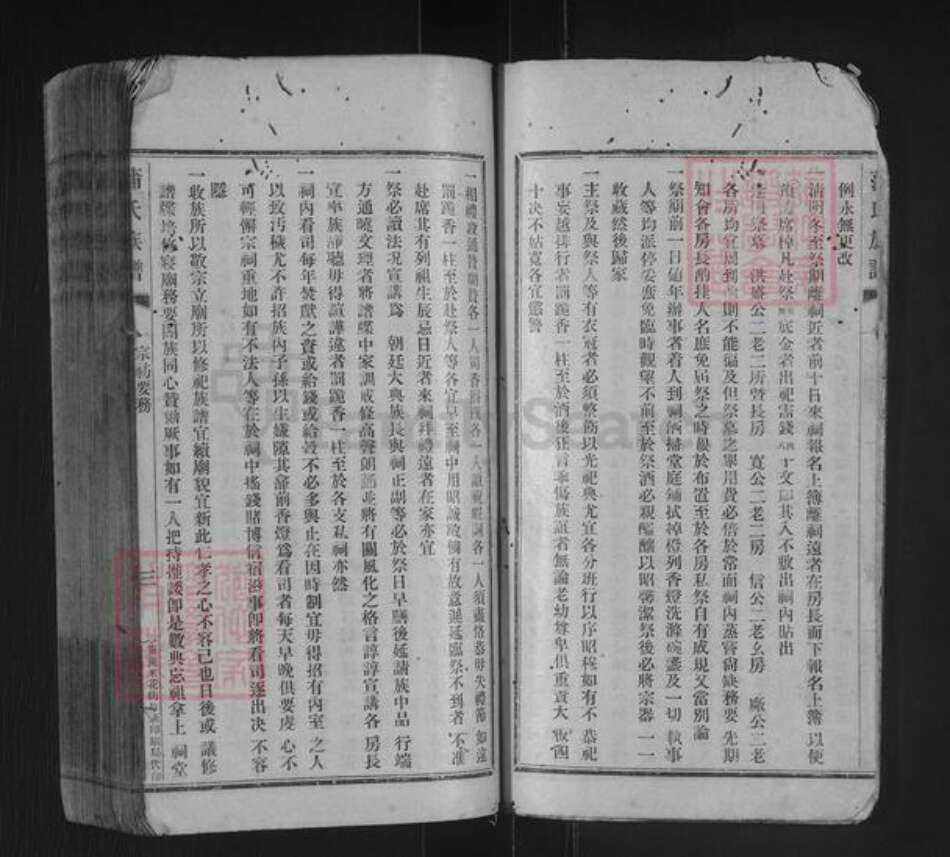 例永無更改
一清明冬至祭期離祠近者前十日來祠報名上簿離祠遠者在房長面下報名上簿 以便
席棹凡赴祭 底金者出祀 錢 十文 其入不敷出祠內貼出
祭墓 洪 公二老二所暨長房 寬公二老二房 信公二老幺房 公二老
各房均宜周到 則不能徧及但祭墓之畢用費必倍於常面祠內蒸嘗尚缺務要 先期
知會各房長酌挂人名庶免屆祭之時艱於布置至於各房私祭自有成規又當別論
一祭期前一日値年辦事者着人到祠洒掃堂庭鋪拭棹櫈列香燈洗滌碗盞及一切 執事
人等均派停妥盍免臨時觀望不前至於祭酒必親醞釀以昭馨潔祭後必將宗器 一一
收藏然後歸家
一主祭及與祭人等有衣冠者必須整飭以光祀典尤宜各分班行以序昭穆如有不 恭祀
事妄越班行者罰跪香一柱至於酒後狂言 傷族誼者無論老幼尊卑俱重責大 板四
十決不姑寬各宜懲警
一相禮設通贊 贊各一人司香 各一人讀祝 各一人須盡恪恭毋失禮節 如違
罰跪香一柱至於赴祭人等各宜早至祠中用昭誠敬倘有故意遲延臨祭不到者 不准
赴席其有列祖生辰忌日近者來祠拜禮遠者在家亦宜
一祭必讀法况宣講爲 朝廷大典族長與祠正副等必於祭日早膳後延請族中品 行端
方通曉文理者將譜牒中家訓戒條高聲朗誦並將有關風化之格言諄諄宣講各 房長
宜率族 聽毋得喧譁違者罰跪香一柱至於各支私祠亦然
一祠內看司每年焚獻之資或給錢或給榖不必多與止在因時制宜毋得招有內室 之人
以致汚穢尤不許招族內子孫以生嫌隙其龕前香燈爲看司者每天早晚俱要虔 心不
可輕懈宗祠重地如有不法人等在於祠中搖錢賭博借宿滋事即將看司逐出决 不容
隱
一收族所以敬宗立廟所以修祀族譜宜續廟貌宜新此仁孝之心不容己也日後或 議修
譜牒培 寢廟務要闔族同心贊勷厥事如有一人把持推諉即是數典忘祖拿上 祠堂
蒲氏族譜
宗祠要務
三